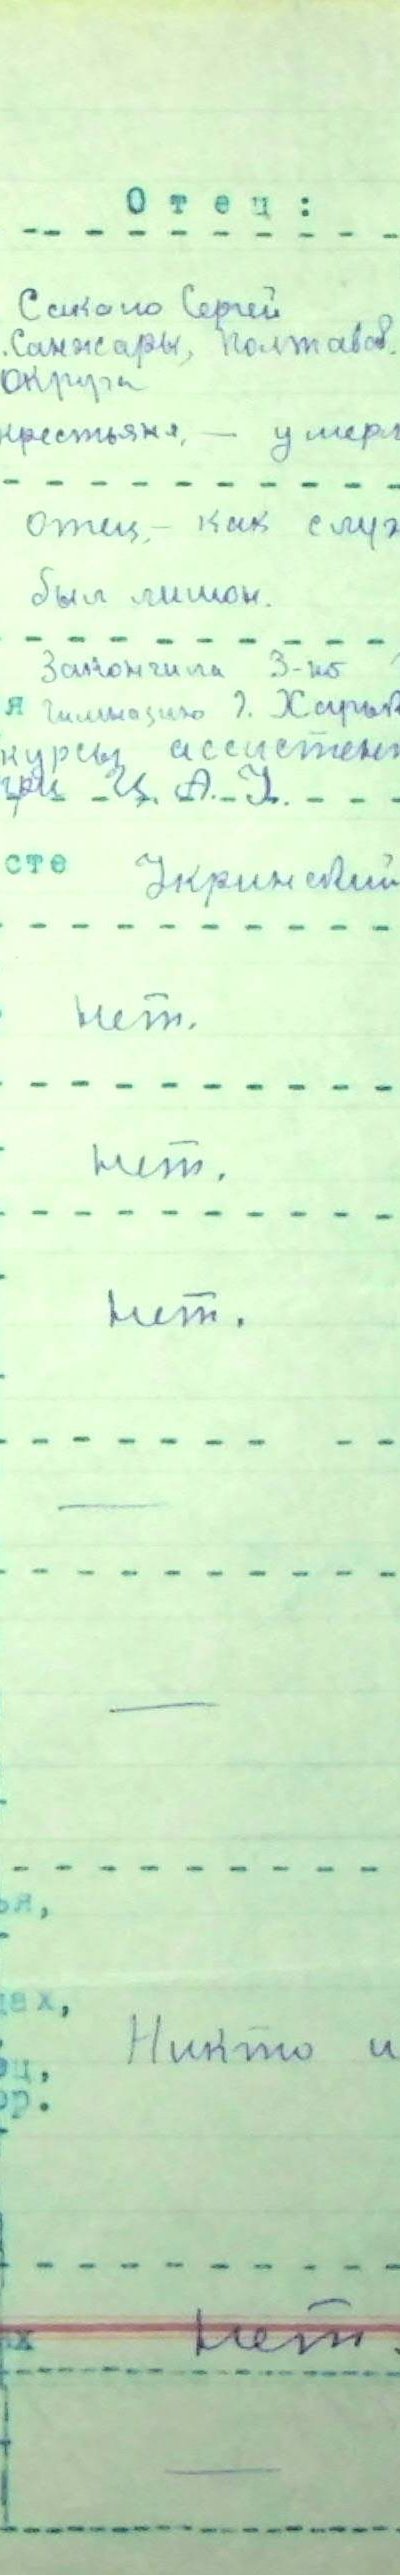 Отец:
Сакало Сергей
.Санжары, Полтавов.
Округа
крестьяне, — умерл
отец, — как служ
был лишон.
Закончила 3-ю
я гимназию г. Харьк
курсы ассистен
при Ц. А. У.
сте Укринский
Нет.
Нет.
Нет.
—
—
ья,
дах,
Никто и
ец,
ор.
х Нет.
—